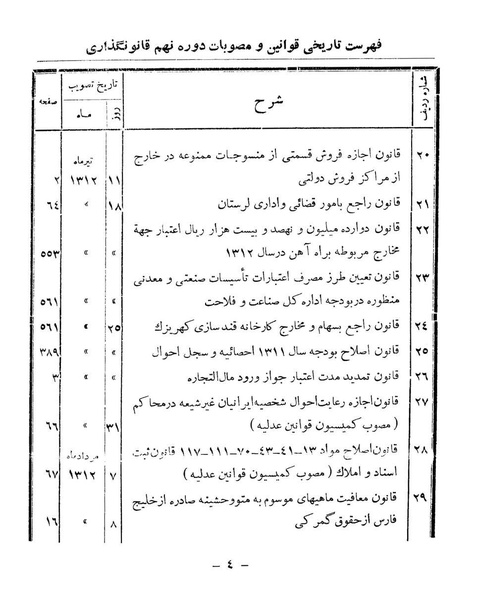 فهرست تاریخی قوانین و مصوبات دوره نهم قانونگذاری
شماره ردیف شرح تاریخ تصویب صفحه
روز ماه
۲۰ قانون اجازه فروش قسمتی از منسوجات ممنوعه در خارج تیرماه
از مراکز فروش دولتی ۱۱ ۱۳۱۲ ۲
۲۱ قانون راجع بامور قضائی واداری لرستان ۱۸ » ۶۴
۲۲ قانون دوازده میلیون و نهصد و بیست هزار ریال اعتبار جهة
مخارج مربوطه براه آهن درسال ۱۳۱۲ » » ۵۵۳
۲۳ قانون تعیین طرز مصرف اعتبارات تأسیسات صنعتی و معدنی
منظوره دربودجه اداره کل صناعت و فلاحت » » ۵۶۱
۲۴ قانون راجع بسهام و مخارج کارخانه قندسازی کهریزك ۲۵ » ۵۶۱
۲۵ قانون اصلاح بودجه سال ۱۳۱۱ احصائیه و سجل احوال » » ۳۸۹
۲۶ قانون تمدید مدت اعتبار جواز ورود مال‌التجاره » » ۳
۲۷ قانون اجازه رعایت احوال شخصیه ایرانیان غیرشیعه درمحاکم
( مصوب کمیسیون قوانین عدلیه ) ۳۱ » ۶۶
۲۸ قانون اصلاح مواد ۱۳–۴۱–۴۳–۷۰–۱۱۱–۱۱۷ قانون ثبت مردادماه
اسناد و املاك ( مصوب کمیسیون قوانین عدلیه ) ۷ ۱۳۱۲ ۶۷
۲۹ قانون معافیت ماهیهای موسوم به متووحشینه صادره ازخلیج
فارس ازحقوق گمرکی ۸ » ۱۶
– ٤ –